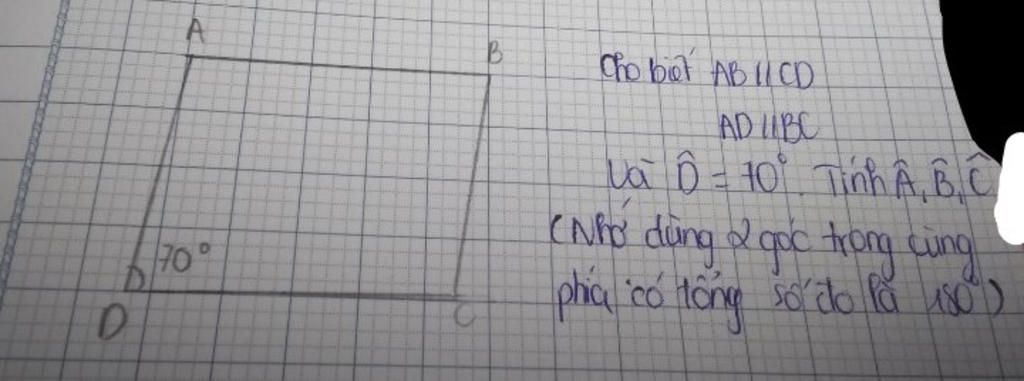 A
B
Cho biết AB//CD
AD//BC
Và D̂ = 70°. Tính Â, B̂, Ĉ
(Nhớ dùng 2 góc trong cùng
phía có tổng số đo là 180°)
70°
D
C